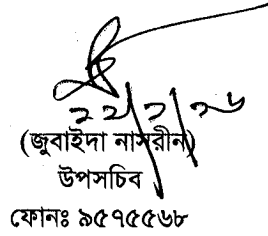 ২২/২/২৬
(জুবাইদা নাসরীন)
উপসচিব
ফোনঃ ৯৫৭৫৫৬৮